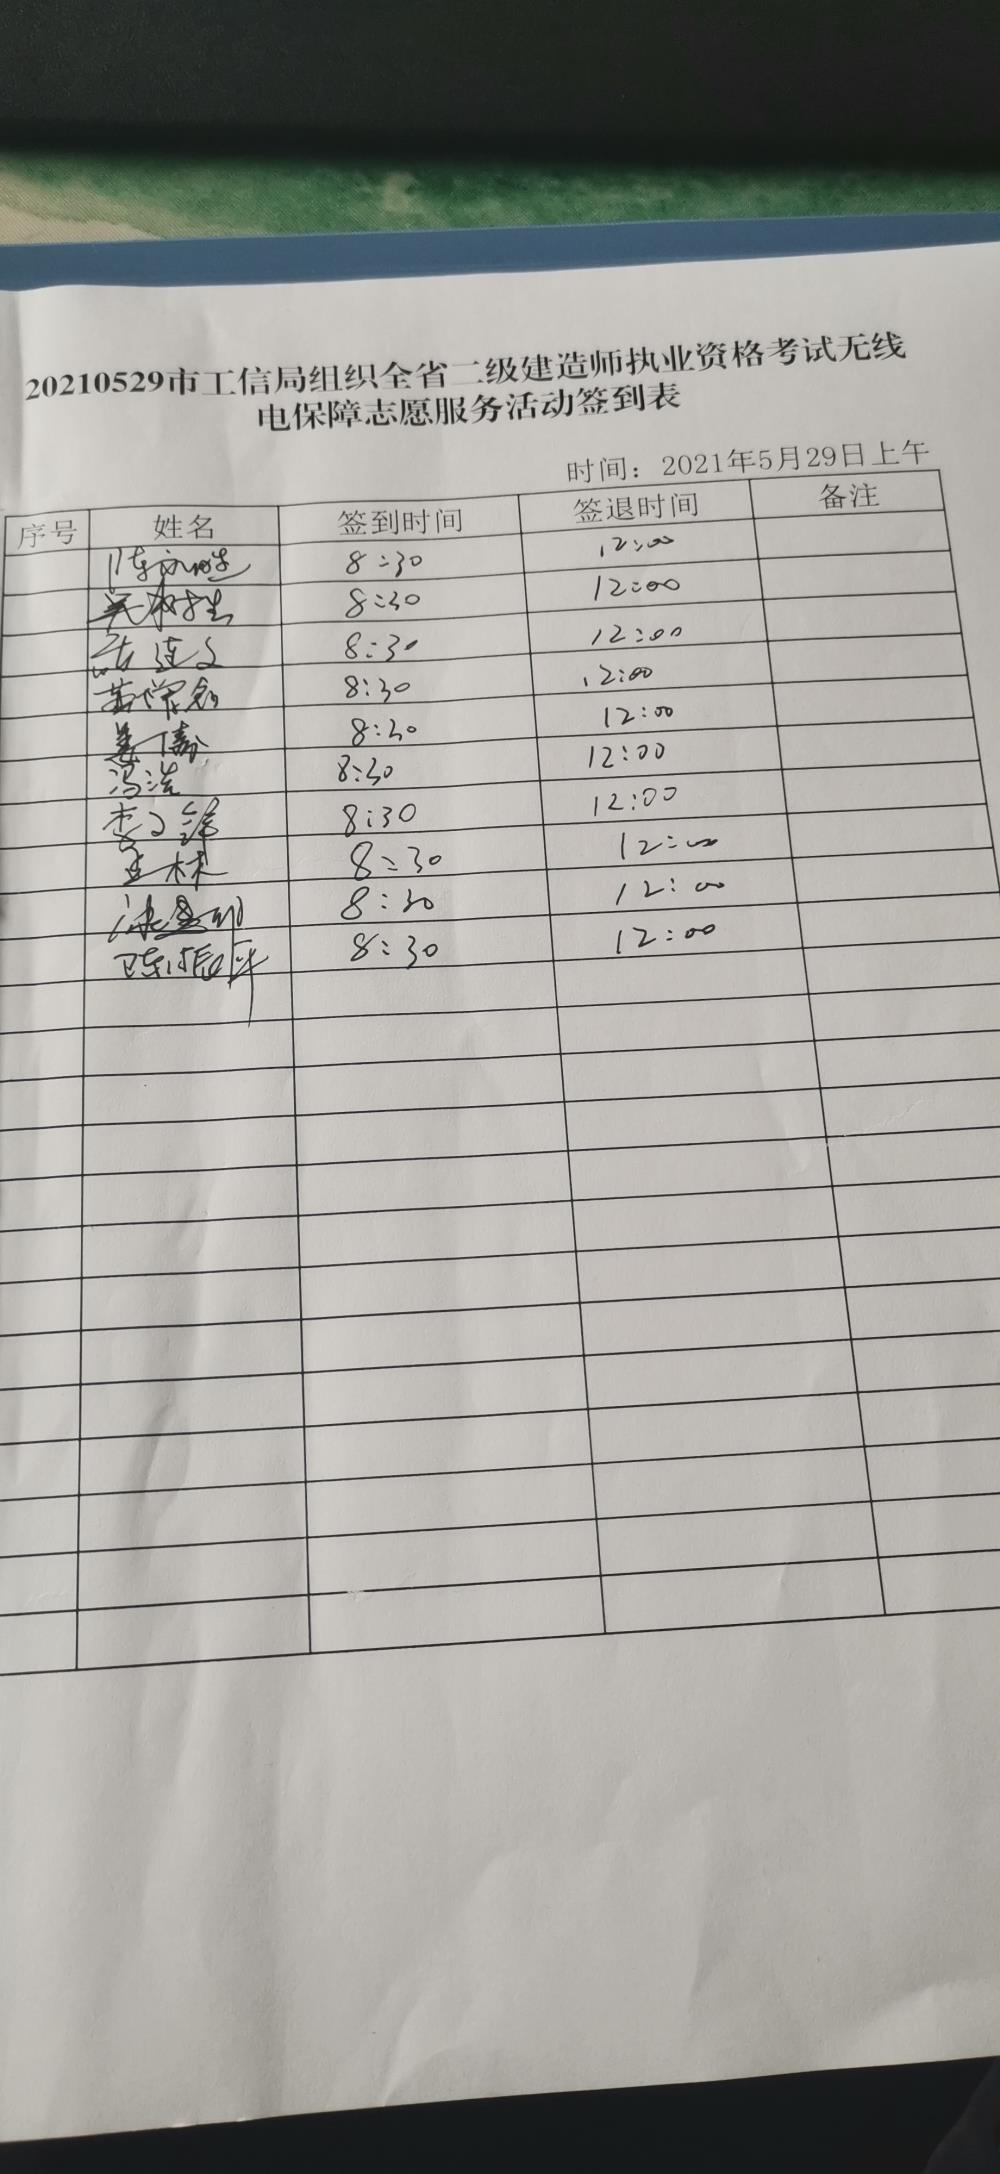 20210529市工信局组织全省二级建造师执业资格考试无线
电保障志愿服务活动签到表
时间：2021年5月29日上午
序号 姓名 签到时间 签退时间 备注
8:30 12:00
8:30 12:00
8:30 12:00
8:30 12:00
8:30 12:00
冯浩 8:30 12:00
8:30 12:00
王林 8:30 12:00
8:30 12:00
8:30 12:00